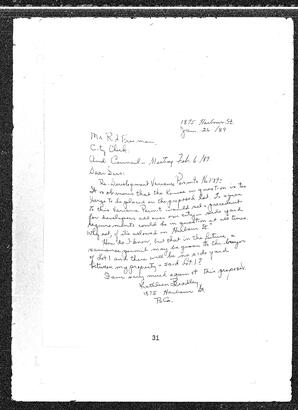 1875 Harbour St.
Jan. 26 /89
Mr. R.A. Freeman,
City Clerk
And Council - Meeting Feb. 6 /89
Dear Sirs:
Re: Development Variance Permit No
It is obvious that the house in question is too
large to be placed on the proposed lot. To agree
to this Variance Permit would set a precedent
for developers all over our city - side yard
requirements could be in question at all times.
Why not, if it's allowed on Harbour St."
How do I know, but that in the future, a
variance permit may be given to the buyer
of Lot 1 and there will be no side yard
between my property & said Lot 1?
I am very much against this proposal.
Kathleen Bradley
1875 Harbour St.
PoCo.
31